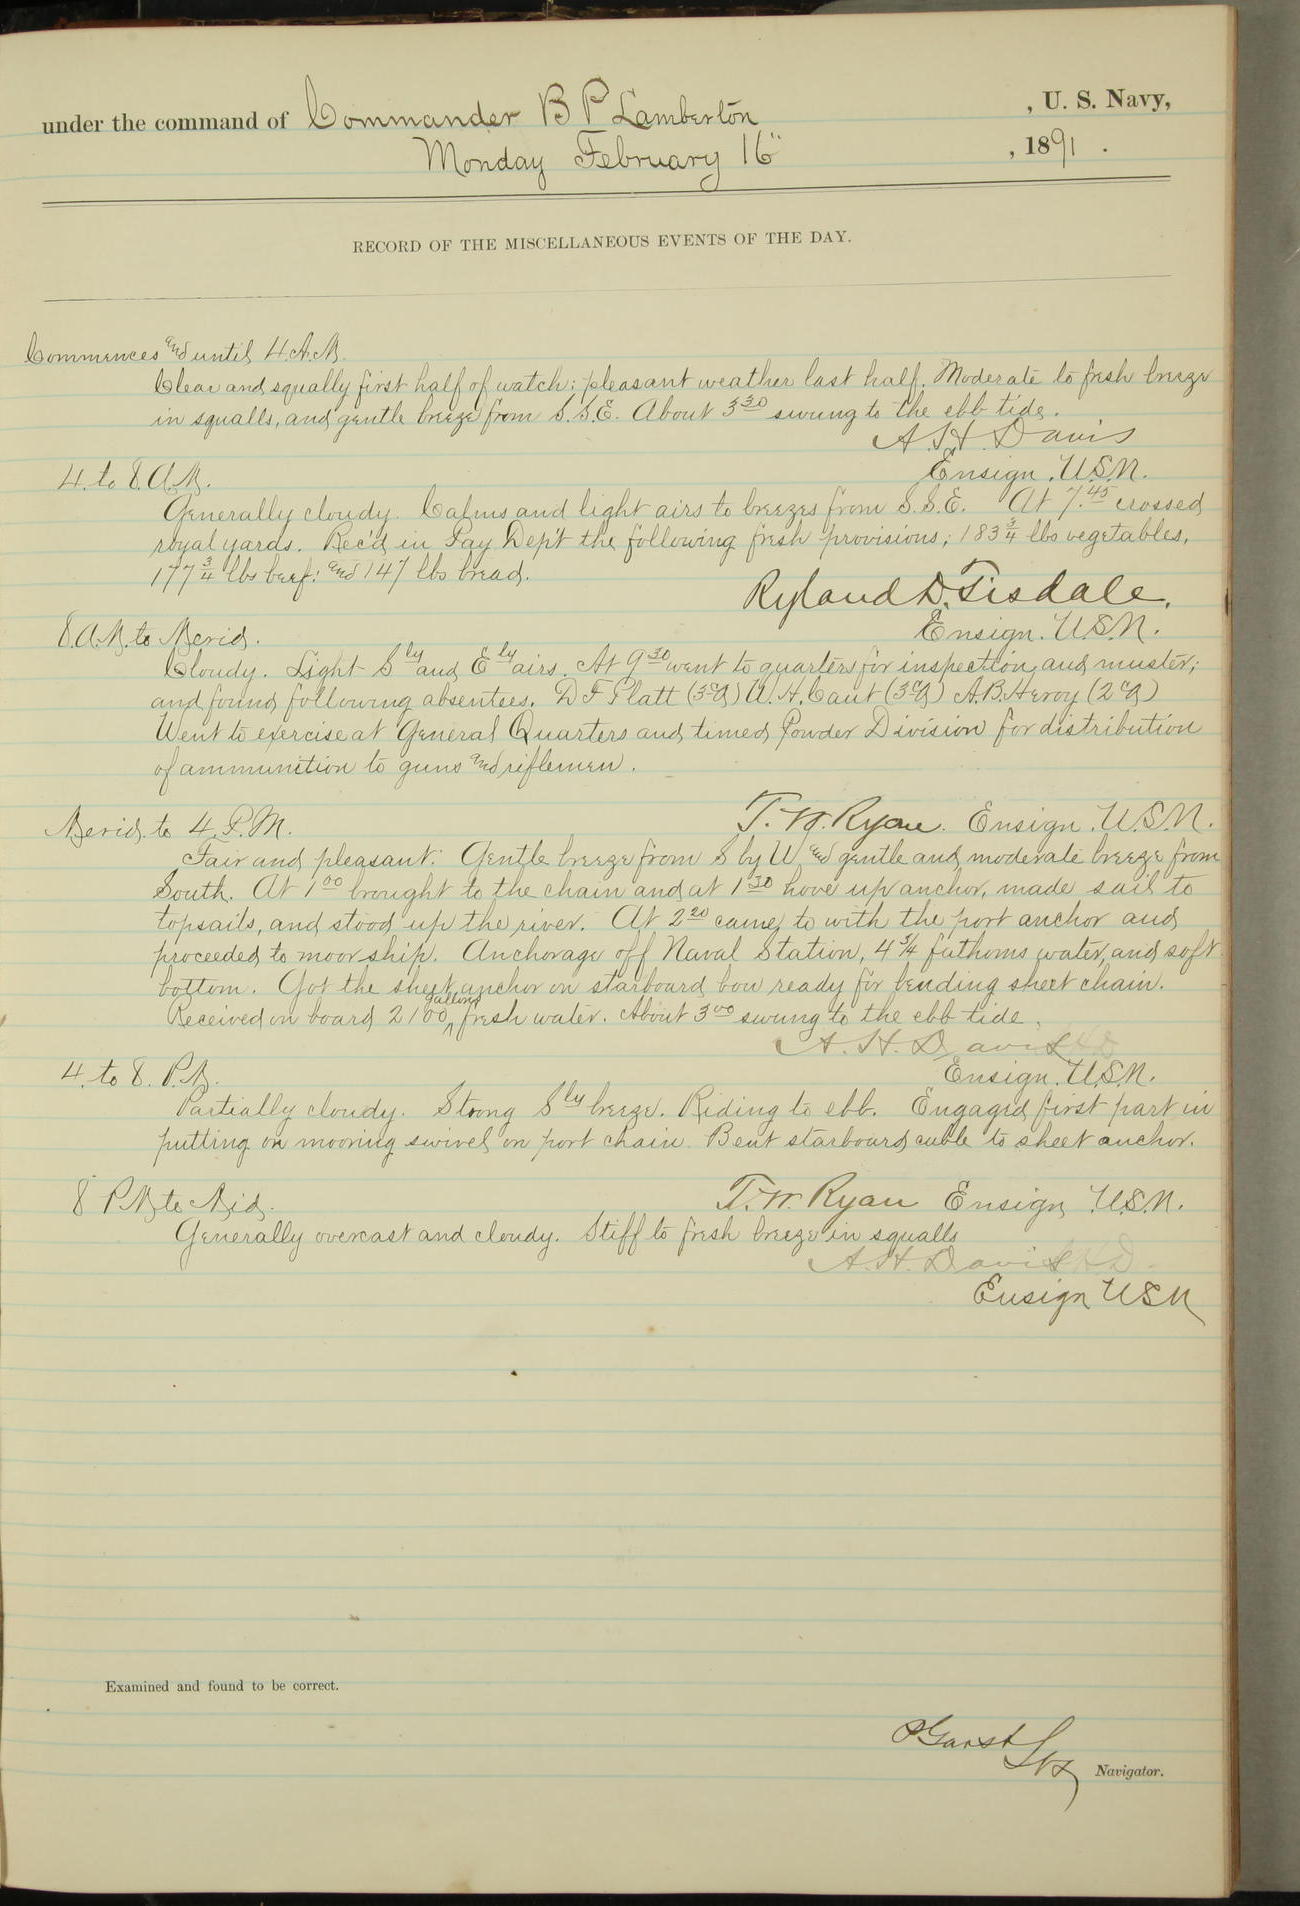 under the command of Commander B P Lamberton , U. S. Navy,
Monday February 16" , 1891 .
RECORD OF THE MISCELLANEOUS EVENTS OF THE DAY.
Commences and until 4.A.M.
Clear and squally first half of watch; pleasant weather last half. Moderate to fresh breeze
in squalls, and gentle breeze from S.S.E. About 3 30 swung to the ebb tide.
A. H. Davis
Ensign. U.S.N.
4. to 8. A.M.
Generally cloudy. Calms and light airs to breezes from S.S.E. At 7.45 crossed
royal yards. Rec'd in Pay Dep't the following fresh provisions; 183 3/4 lbs vegetables,
177 3/4 lbs beef: and 147 lbs bread.
Ryland D. Tisdale.
Ensign. U.S.N.
8.A.M. to Merid.
Cloudy. Light Sly and Ely airs. At 9 30 went to quarters for inspection and muster;
and found following absentees. D F Platt (3 cl) A. B. Hervy (2 cl)
Went to exercise at General Quarters and timed Powder Division for distribution
of ammunition to guns and riflemen.
T. W. Ryan. Ensign. U.S.N.
Merid. to 4. P.M.
Fair and pleasant. Gentle breeze from S by W. and gentle and moderate breeze from
South. At 1 00 brought to the chain and at 1 30 hove up anchor, made sail to
topsails, and stood up the river. At 2 20 came to with the port anchor and
proceeded to moor ship. Anchorage off Naval Station, 4 3/4 fathoms water, and soft
bottom. Got the sheet anchor on starboard bow ready for bending sheet chain.
Received on board 2100 gallons fresh water. About 3 00 swung to the ebb tide.
A. H. Davis
Ensign. U.S.N.
4. to 8. P.M.
Partially cloudy. Strong Sly breeze. Riding to ebb. Engaged first part in
putting on mooring swivel on port chain. Bent starboard cable to sheet anchor.
T. W. Ryan Ensign U.S.N.
8 P.M. to Mid.
Generally overcast and cloudy. Stiff to fresh breeze in squalls
A. H. Davis
Ensign USN
Examined and found to be correct.
P Garst
Navigator.